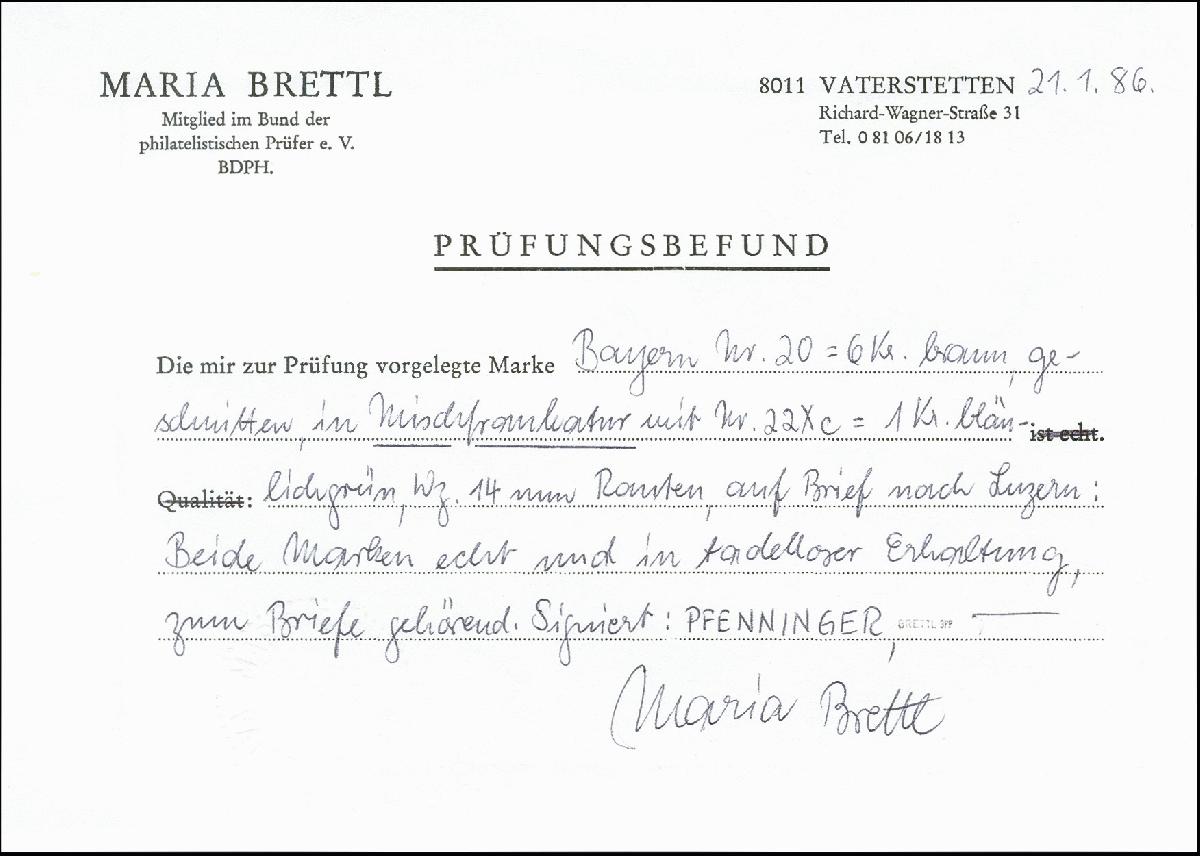 MARIA BRETTL
Mitglied im Bund der
philatelistischen Prüfer e. V.
BDPH.
8011 VATERSTETTEN 21.1.86.
Richard-Wagner-Straße 31
Tel. 0 81 06/18 13
PRÜFUNGSBEFUND
Die mir zur Prüfung vorgelegte Marke Bayern Nr. 20 = 6 Kr. braun, ge-
schnitten, in Mischfrankatur mit Nr. 22Xc = 1 Kr. bläu- ist echt.
Qualität: lichgrün, Wz. 14 mm Rauten, auf Brief nach Luzern:
Beide Marken echt und in tadelloser Erhaltung,
zum Briefe gehörend. Signiert: PFENNINGER, BRETTL BPP
Maria Brettl